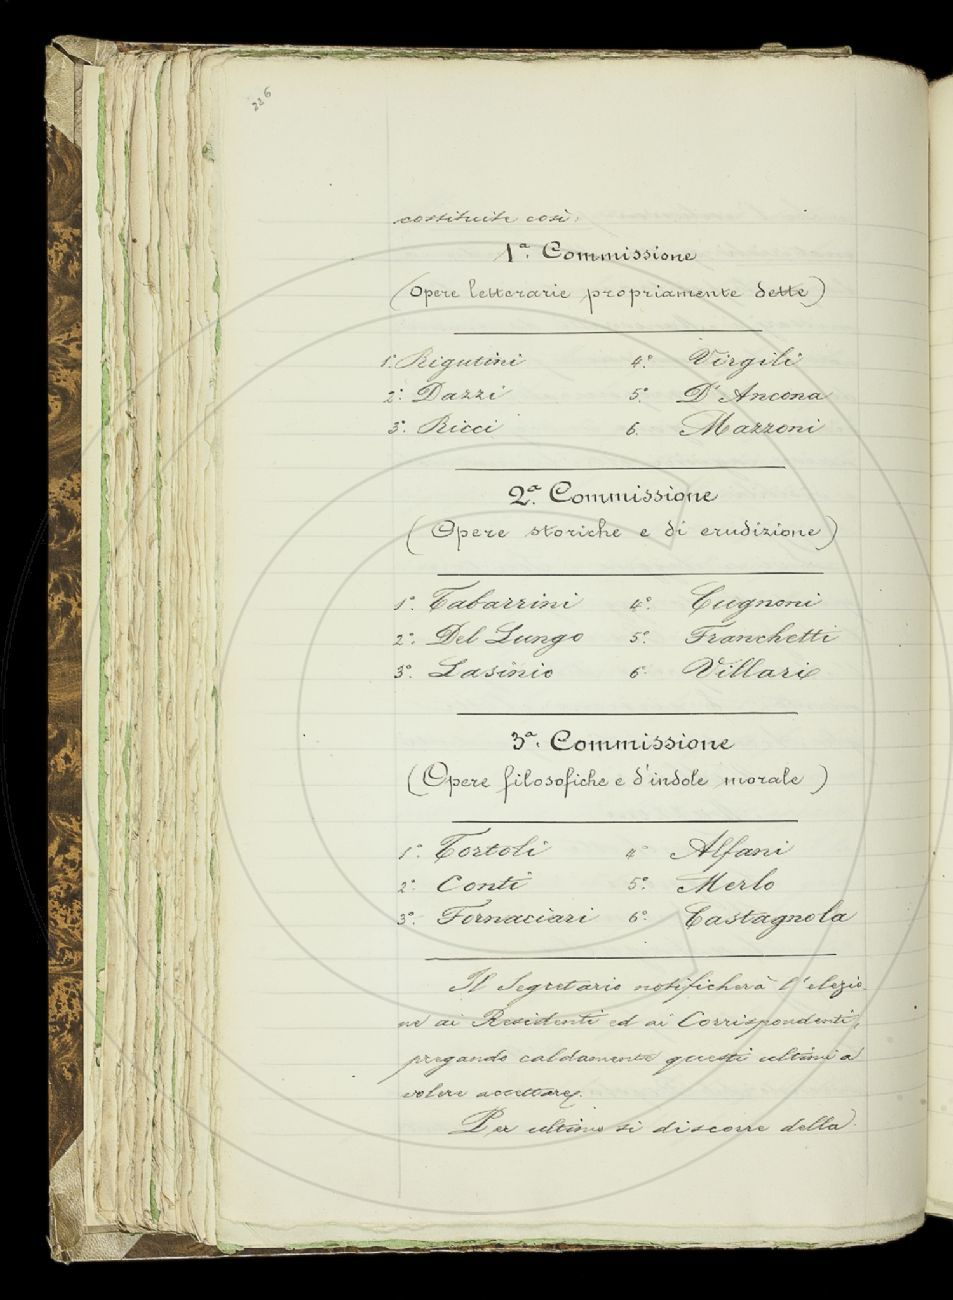 226
costituite così:
1ª. Commissione
(Opere letterarie propriamente dette)
1º. Rigutini 4º. Virgili
2º. Dazzi 5º. D'Ancona
3º. Ricci 6. Mazzoni
2ª. Commissione
(Opere storiche e di erudizione)
1º. Tabarrini 4º. Cugnoni
2º. Del Lungo 5º. Franchetti
3º. Lasinio 6º Villari
3ª. Commissione
(Opere filosofiche e d'indole morale)
1º. Tortoli 4º Alfani
2º. Conti 5º. Merlo
3º. Fornaciari 6º Castagnola
Il Segretario notificherà l'elezio-
ne ai Residenti ed ai Corrispondenti,
pregando caldamente questi ultimi a
volere accettare.
Per ultimo si discorre della